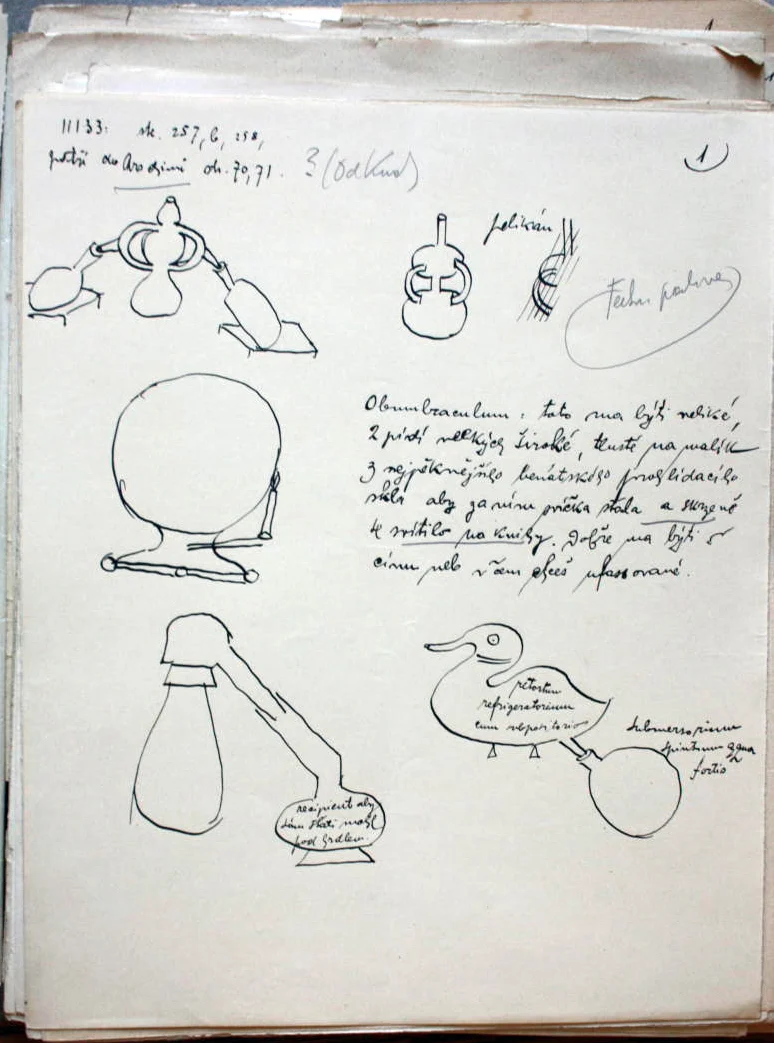 11133: str. 257, b, 258,
patří do Arodiní str. 70, 71. 3 (odkud)
1
pelikán
Obumbraculum: toto ma býti veliké,
2 pídi velkých široké, tlusté na malík
z nejpěknějšího benátského prohlidacího
skla aby za ním svíčka stála a skrzeně
svítilo na knihy. Dobře ma býti v
cínu neb v čem chceš ufasované.
retortum
refrigeratorium
cum repositorio
submersorium
spirituum aqua
fortis
recipient aby
sám státi mohl
pod hrdlem.